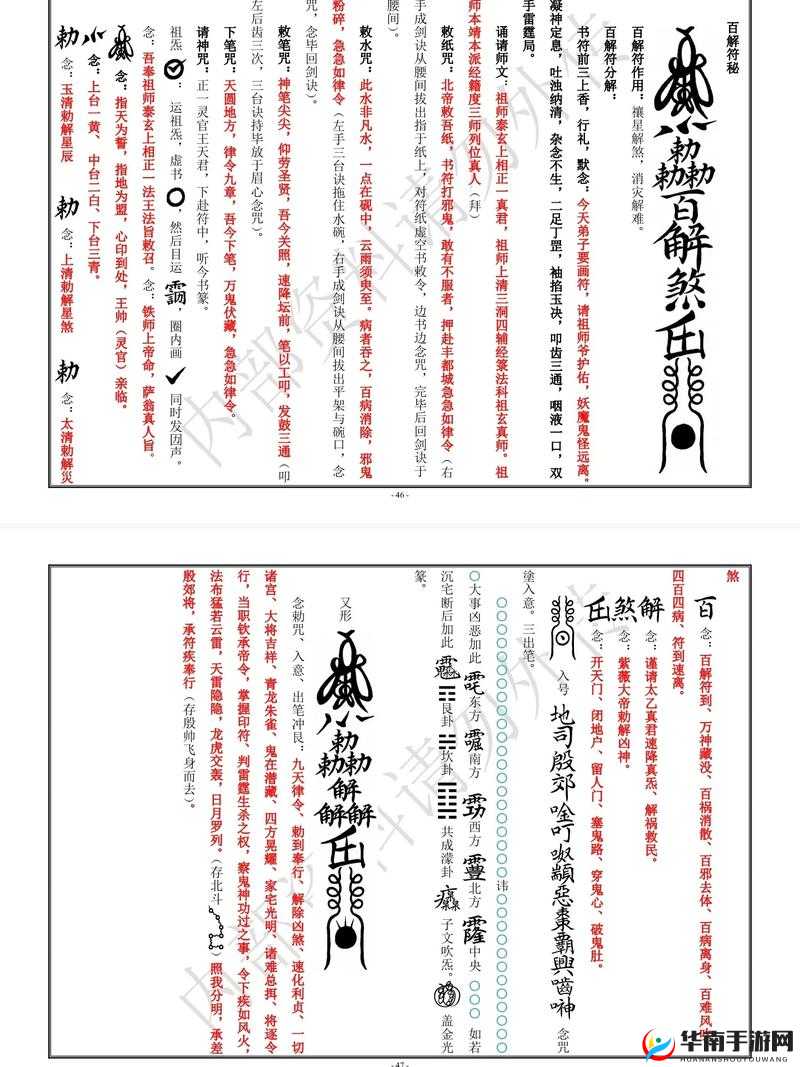 百解符秘
百解符作用：禳星解煞，消灾解难。
百解符分解：
书符前三上香，行礼，默念：今天弟子要画符，请祖师爷护佑，妖魔鬼怪远离。
凝神定息，吐浊纳清，杂念不生，二足丁罡，袖掐玉决，叩齿三通，咽液一口，双
手雷霆局。
诵请师文：祖师泰玄上相正一真君，祖师上清三洞四辅经箓法科祖玄真师。祖
师本靖本派经籍度三师列位真人（拜）
敕纸咒：北帝敕吾纸，书符打邪鬼，敢有不服者，押赴丰都城急急如律令（右
手成剑诀从腰间拔出指于纸上，对符纸虚空书敕令，边书边念咒，完毕后回剑诀于
腰间）。
敕水咒：此水非凡水，一点在砚中，云雨须臾至。病者吞之，百病消除，邪鬼
粉碎，急急如律令（左手三台诀拖住水碗，右手成剑诀从腰间拔出平架与碗口，念
咒，念毕回剑诀）。
敕笔咒：神笔尖尖，仰劳圣贤，吾今关照，速降坛前，笔以工叩，发鼓三通（叩
左后齿三次，三台诀持毕放于眉心念咒）。
下笔咒：天圆地方，律令九章，吾今下笔，万鬼伏藏，急急如律令。
请神咒：正一灵官王天君，下赴符中，听今书篆。
祖炁 运祖炁，虚书 ，然后目运 ，圈内画 同时发囫声。
念：吾奉祖师泰玄上相正一法王法旨敕召。念：铁师上帝命，萨翁真人旨。
念：指天为誓，指地为盟，心印到处，王帅（灵官）亲临。
念：上台一黄、中台二白、下台三青。
勅 念：玉清勅解星辰 勅 念：上清勅解星煞 勅 念：太清勅解災
百解煞
-46-
煞
百 念：百解符到、万神藏没、百祸消散、百邪去体、百病离身、百难风吹
四百四病、符到速离。
解 念：谨请太乙真君速降真炁、解祸救民。
煞 念：紫薇大帝勅解凶神。
念：开天门、闭地户、留人门、塞鬼路、穿鬼心、破鬼肚。
入号 地司殷郊 念咒
塗入意。三出笔。
〇〇〇〇〇〇〇〇〇〇〇〇〇〇〇〇〇讳〇〇〇〇〇〇〇〇〇〇
〇大事凶恶加此 东方 南方 西方 北方 中央〇〇〇如若
沉宅断后加此 ䷳艮卦 坎卦 共成濛卦 子文吹炁。 盖金光
篆。
又形
勅勅勅解解解
念勅咒、入意、出笔冲艮：九天律令、勅到奉行、解除凶煞、速化利贞、一切
诸宫、大将吉祥、青龙朱雀、鬼在潜藏、四方晃耀、家宅光明、诸难总拜、将逐令
行，当职钦承帝令，掌握印符、判雷霆生杀之权，察鬼神功过之事，令下疾如风火，
法布猛若云雷，天雷隐隐，龙虎交轰，日月罗列。（存北斗 ）照我分明，承差
殷郊将，承符疾奉行（存殷帅飞身而去）。
-47-
内部资料请勿外传
内部资料请勿外传
华南手游网
HUANANSHOUYOUWANG